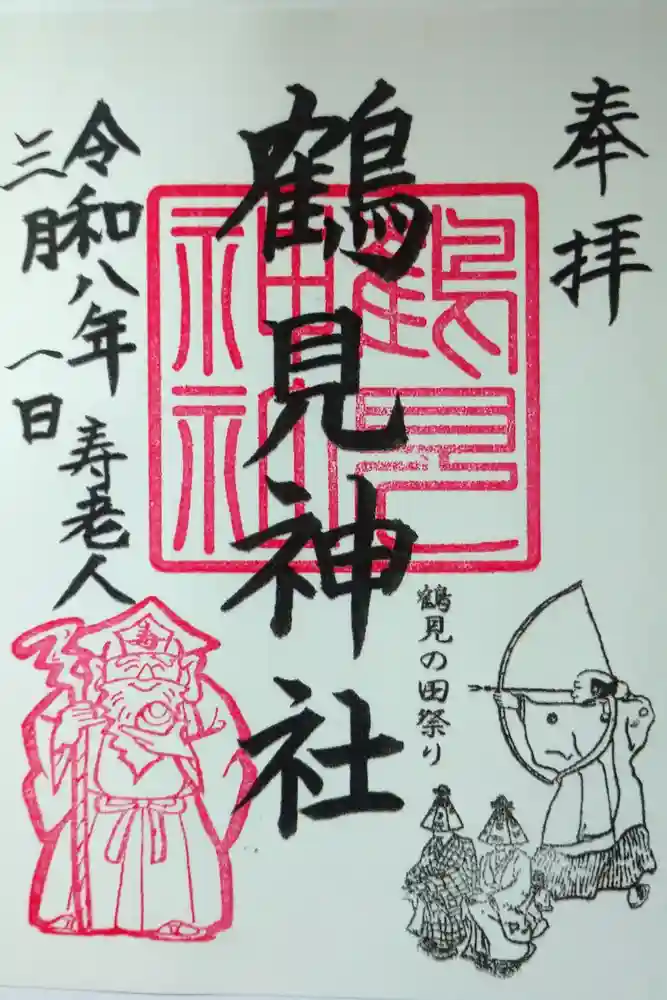 奉拝
鶴見神社
鶴見
神社
令和八年
三月一日
寿老人
寿
鶴見の田祭り